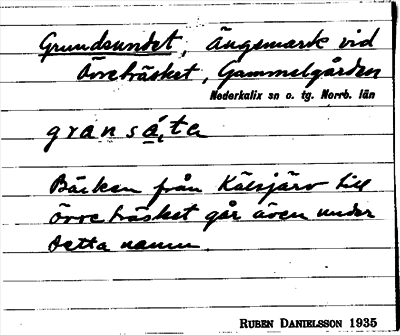 Grundsundet, Ängsmark vid
Övreträsket, Gammelgården
Nederkalix sn o. tg. Norrb. län
Bäcken från Kälsjärv till
Övreträsket går även under
detta namn.
RUBEN DANIELSSON 1935